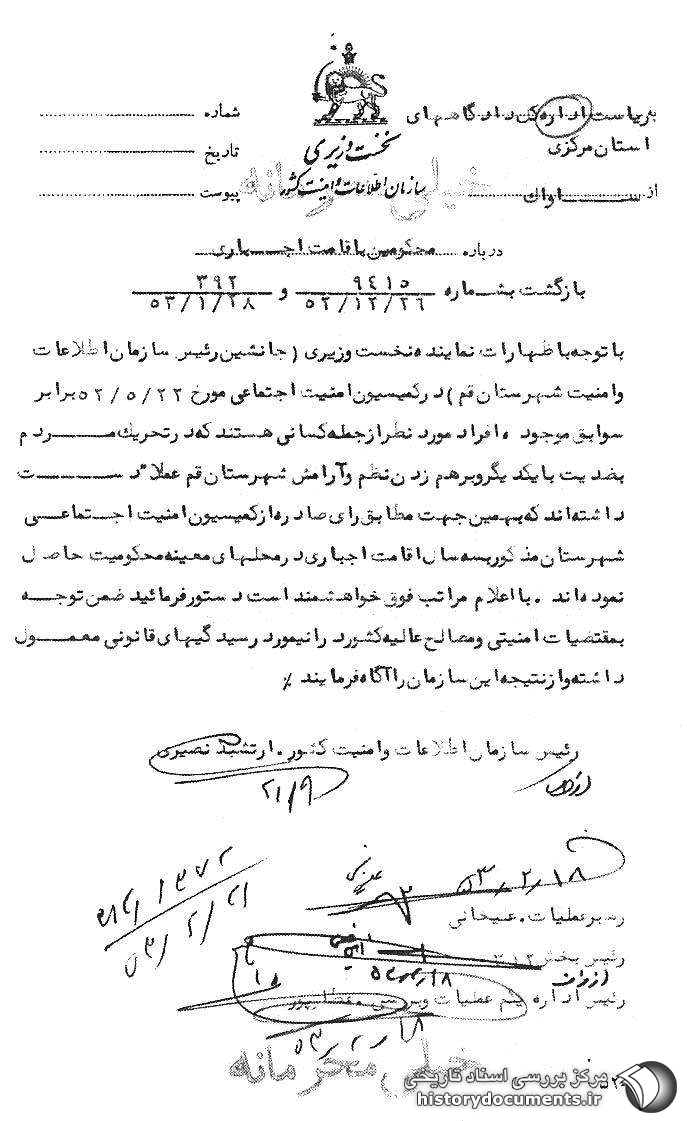 به ریاست اداره کل دادگاههای
استان مرکزی
از ســـاواک
نخست وزیری
سازمان اطلاعات و امنیت کشور
شماره
تاریخ
پیوست
خیلی محرمانه
درباره محکومین باقامت اجباری
بازگشت بشماره ۹۴۱۵ / ۵۲/۱۲/۲۶ و ۳۹۲ / ۵۳/۱/۲۸
با توجه باظهارات نماینده نخست وزیری (جانشین رئیس سازمان اطلاعات
وامنیت شهرستان قم) در کمیسیون امنیت اجتماعی مورخ ۵۲/۵/۲۲ برابر
سوابق موجود ه افراد مورد نظر از جمله کسانی هستند که در تحریک مــردم
بضدیت با یکدیگر و برهم زدن نظم و آرامش شهرستان قم عملا" دســـت
داشته اند که بهمین جهت مطابق رای صادره از کمیسیون امنیت اجتماعــی
شهرستان مذکور بسه سال اقامت اجباری در محلهای معینه محکومیت حاصل
نموده اند . با اعلام مراتب فوق خواهشمند است دستور فرمائید ضمن توجـه
بمقتضیات امنیتی و مصالح عالیه کشور درا نیمورد رسیدگیهای قانونی معمـول
داشته و از نتیجه این سازمان را آگاه فرمایند ٪
رئیس سازمان اطلاعات وامنیت کشور . ارتشبد نصیری
۲۱/۹
۵۳/۲/۱۸
رهبر عملیات .
رئیس بخش ۳۱۲
رئیس اداره یکم عملیات و بررسی . عطارپور
۵۳/۲/۲۱
خیلی محرمانه
مرکز بررسی اسناد تاریخی
historydocuments.ir